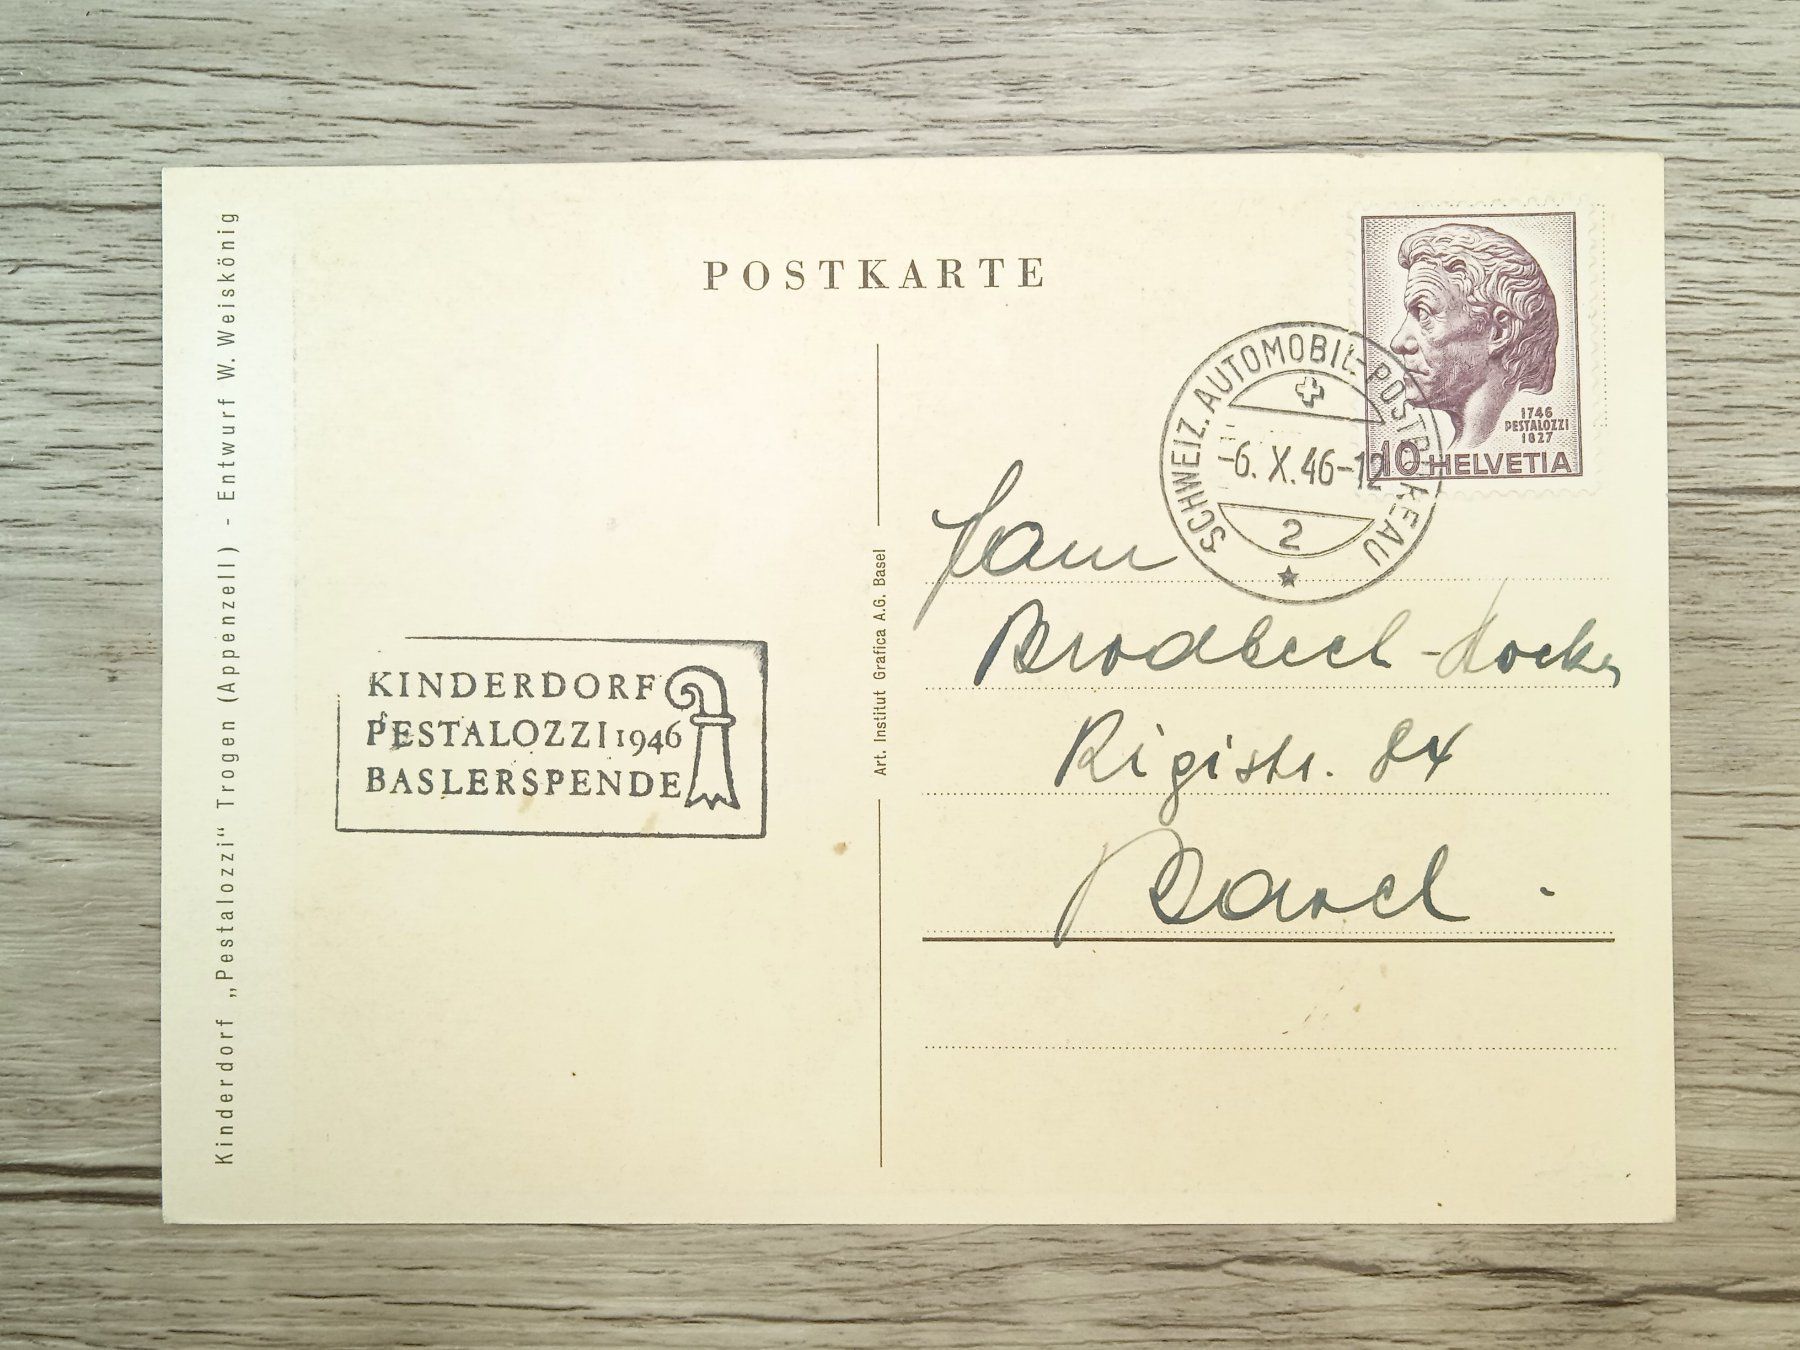 POSTKARTE
1746
PESTALOZZI
1827
10 HELVETIA
SCHWEIZ. AUTOMOBIL-POSTBUREAU
-6. X. 46-12
2
Fam
Brodbeck-
Rigistr. 84
Basel.
KINDERDORF
PESTALOZZI 1946
BASLERSPENDE
Art. Institut Grafica A.G. Basel
Kinderdorf „Pestalozzi“ Trogen (Appenzell) - Entwurf W. Weiskönig